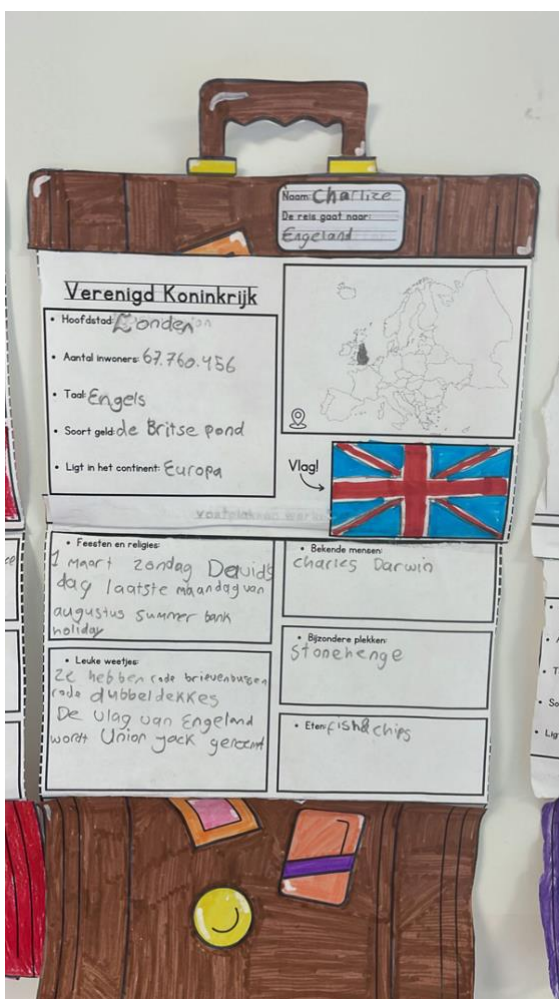 Naam: Charlize
De reis gaat naar:
Engeland
Verenigd Koninkrijk
• Hoofdstad: Londen
• Aantal inwoners: 67.760.456
• Taal: Engels
• Soort geld: de Britse pond
• Ligt in het continent: Europa
Vlag!
• Feesten en religies:
1 maart zondag Davids
dag laatste maandag van
augustus summer bank
holiday
• Leuke weetjes:
ze hebben rode brievenbussen
rode dubbeldekkes
De vlag van Engeland
wordt Union jack genoemt
• Bekende mensen:
charles Darwin
• Bijzondere plekken:
Stonehenge
• Eten: fish& chips